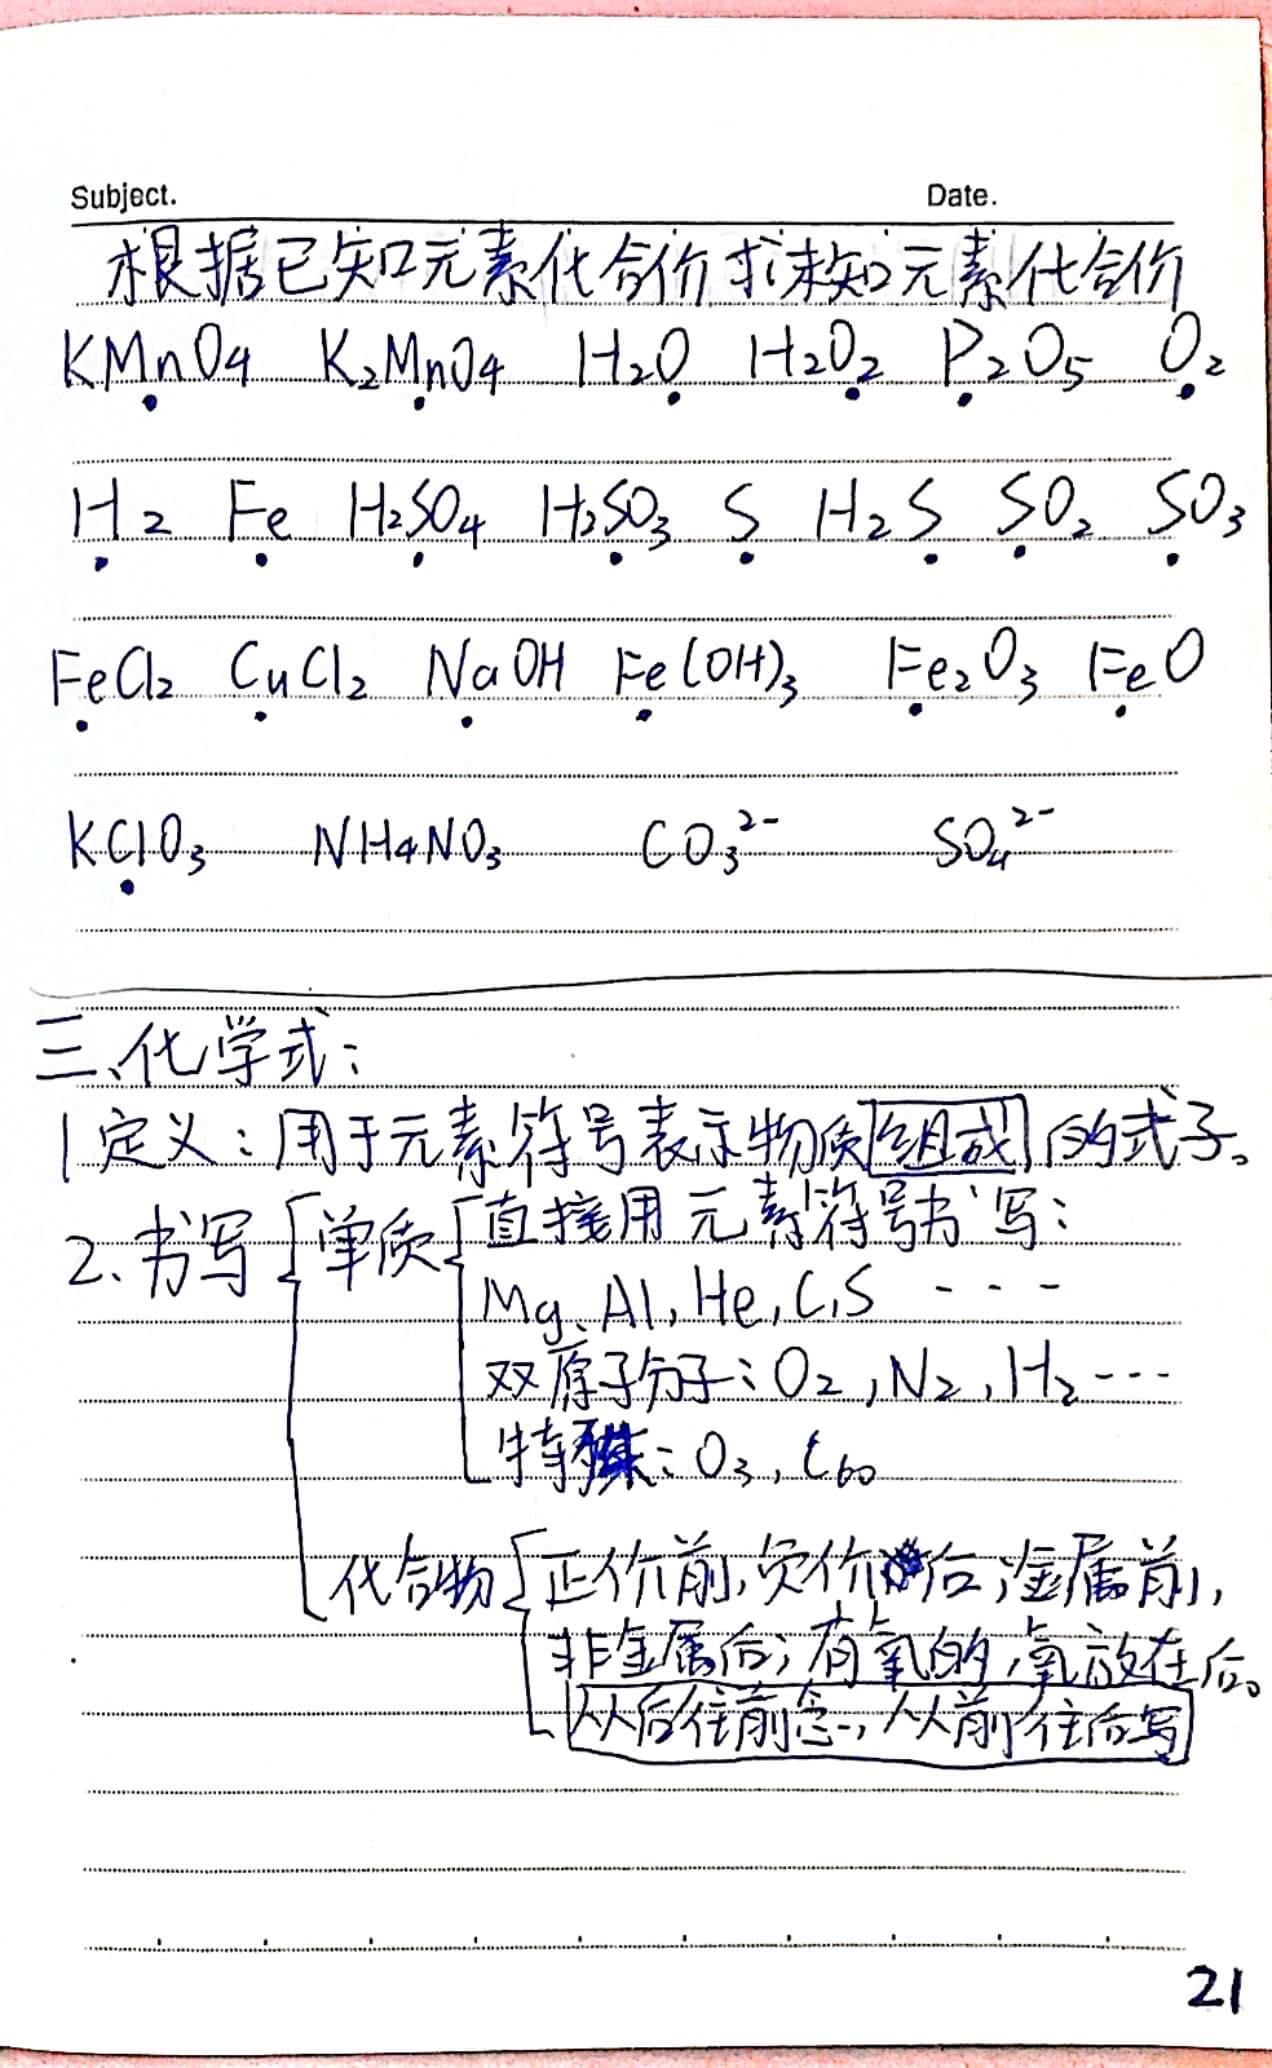 Subject. Date.
根据已知元素化合价求未知元素化合价
KMnO4 K₂MnO4 H₂O H₂O₂ P₂O₅ O₂
H₂ Fe H₂SO₄ H₂SO₃ S H₂S SO₂ SO₃
FeCl₂ CuCl₂ NaOH Fe(OH)₃ Fe₂O₃ FeO
KClO₃ NH₄NO₃ CO₃²⁻ SO₄²⁻
三、化学式:
1定义:用于元素符号表示物质组成的式子。
2、书写 单质 直接用元素符号书写:
Mg、Al, He, C, S ---
双原子分子:O₂, N₂, H₂---
特殊:O₃, C₆₀
化合物 正价前,负价后;金属前,
非金属后;有氧的,氧放在后。
从后往前念,从前往后写
21